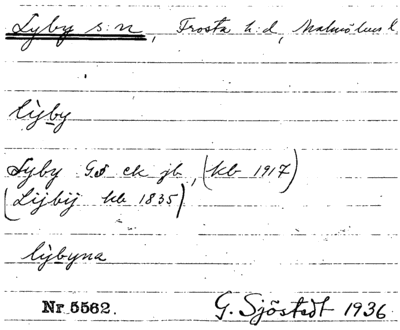 Lyby s:n, Frosta h:d, Malmöhus l.
lỳby
Lyby GS ek jb, (kb 1917)
(Lijbij kb 1835)
lỳbyna
Nr 5562. G. Sjöstedt 1936